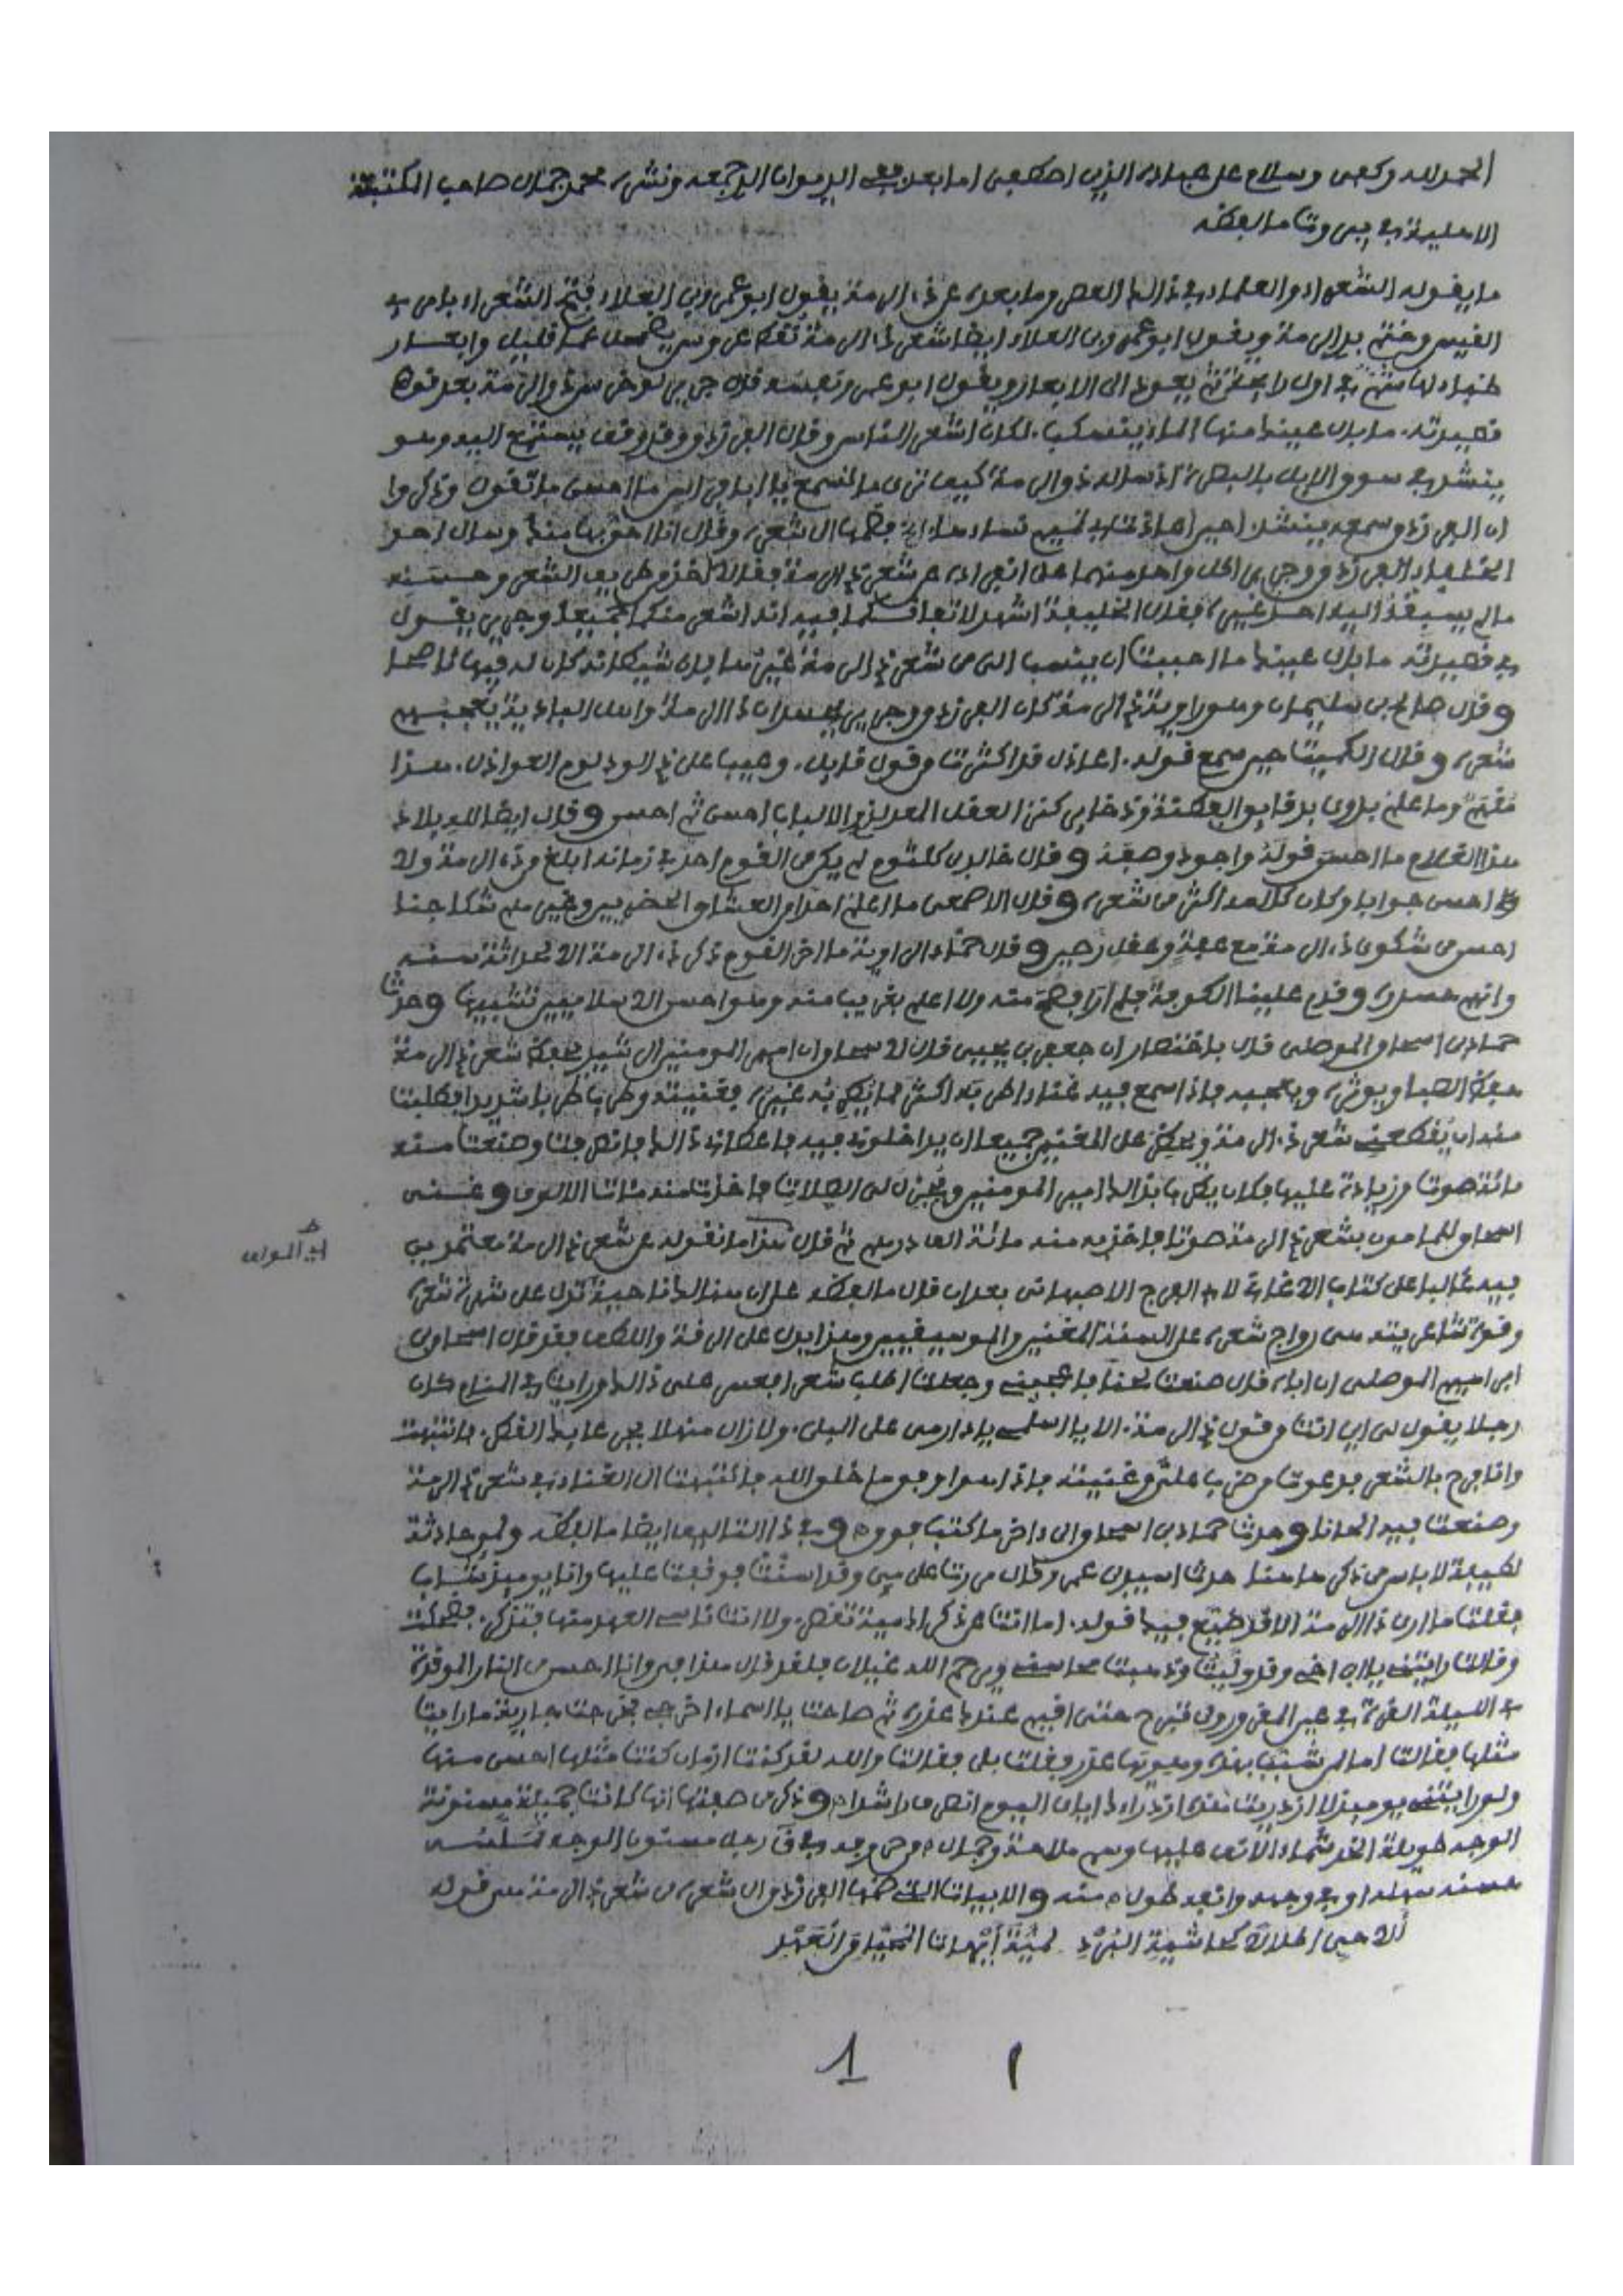 الحمد لله وكفى وسلام على عباده الذين اصطفى اما بعد ففي الديوان الذي جمعه ونشره محمد جمال صاحب المكتبة
الاهلية في بيروت ما لفظه
ما يقوله الشعراء والعلماء في ذلك العصر وما بعده عن ذي الرمة يقول ابو عمرو بن العلاء فتح الشعراء بامرئ
القيس وختم بذي الرمة ويقول ابو عمرو بن العلاء ايضا شعر ذي الرمة نقط عروس يضمحل عما قليل وابعار
ظباء لها مشم في اول رائحتها ثم يعود الى الابعار ويقول ابو عمرو نفسه قال جرير لو خرس ذو الرمة بعد قوله
قصيدته ما بال عينك منها الماء ينسكب. لكان اشعر الناس وقال الفرزدق وقد وقف يستمع اليه وهو
ينشد في سوق الابل بالبصرة اذ ساله ذو الرمة كيف ترى ما تسمع يا ابا فراس ما احسن ما تقول وذكروا
ان الفرزدق سمعه ينشد احين اعاذت بي تميم نساءها فضمها الى شعره وقال انا احق بها منك وسال احد
الخلفاء الفرزدق وجرير كل واحد منهما على انفراده عن شعر ذي الرمة فقال اخذ من طريف الشعر وحسنه
ما لم يسبقه اليه احد غيره فقال الخليفة اشهد لاتفاقكما فيه انه اشعر منكما جميعا وجرير يقول
في قصيدته ما بال عينك ما احببت ان ينسب الي من شعر ذي الرمة غير ما بال شيطانه كان له فيها ناصحا
وقال صالح بن سليمان وهو راوية ذي الرمة كان الفرزدق وجرير يحسدان ذا الرمة واهل البادية يعجبهم
شعره وقال الكميت حين سمع قوله. اعاذل قد اكثرت من قول قايل. وعيب على ذي الود لوم العواذل. هذا
ملهم وما علم بدوي بدقايق الفطنة وذخاير كنز العقل المعد لذوي الالباب احسن ثم احسن وقال ايضا لله بلاد
هذا الغلام ما احسن قوله واجود وصفه وقال خالد بن كلثوم لم يكن في القوم احد في زمانه ابلغ من ذي الرمة ولا
احسن جوابا وكان كلامه اكثر من شعره وقال الاصمعي ما اعلم احدا من العشاق الحضريين وغيرهم شكا حبا
احسن من شكوى ذي الرمة مع عفة وعقل رصين وقال حماد الراوية ما اخر القوم ذكر ذي الرمة الا لحداثة سنه
وانهم حسدوه وقدم علينا الكوفة فلم ار افصح منه ولا اعلم بغريب منه وهو احسن الاسلاميين تشبيها وحدث
حماد بن اسحاق الموصلي قال باختصار ان جعفر بن يحيى قال لاسحاق ان امير المومنين الرشيد يحفظ شعر ذي الرمة
حفظ الصبا ويوثره ويعجبه فاذا سمع فيه غناء اطربه اكثر مما يطربه غيره فغنيته وطرب طربا شديدا فطلبت
منه ان يقطعني شعر ذي الرمة ويحظر على المغنين جميعا ان يداخلوني فيه فاعطاني ذلك فانصرفت وصنعت منه
مائة صوت وزيادة عليها فكان يطرب بذلك امير المومنين ويجزل لي الصلات فاخذت منه مئات الالوف وغنى
اسحاق للمامون بشعر ذي الرمة صوتا فاخذ به منه مائة الف درهم ثم قال هذا ما نقوله عن شعر ذي الرمة معتمدين
فيه غالبا على كتاب الاغاني لابي الفرج الاصبهاني بعد ان قال ما لفظه على ان هنالك ناحية تدل على شهرة شعره
وقوة شاعريته هي رواج شعره على السنة المغنين والموسيقيين وهذا يدل على الرقة واللطف فقد قال اسحاق بن
ابراهيم الموصلي ان اباه قال صنعت لحنا فاعجبني وجعلت اطلب شعرا فعسر علي ذلك ورايت في المنام كان
رجلا يقول لي اين انت من قول ذي الرمة. الا يا اسلمي يا دار مي على البلى. ولا زال منهلا بجرعائك القطر. فانتبهت
وانا فرح بالشعر فدعوت من ضرب علي وغنيته فاذا هو اوفق ما خلق الله فانتبهت الى الغناء في شعر ذي الرمة
وصنعت فيه الحانا وحدث حماد بن اسحاق الى اخر ما كتب فوق وفي ذا التاليف ايضا ما لفظه ولمي حادثة
لطيفة لا باس من ذكرها هنا حدث اسيد بن عمر وقال مررت على مي وقد اسنت فوقفت عليها وانا يوميذ شاب
فقلت ما ارى ذا الرمة الا قد ضيع فيك قوله. اما انت عن ذكراك مية تقصر. ولا انت ناسي العهد منها فتذكر. فضحكت
وقالت رايتني يا ابن اخي وقد وليت وذهبت محاسني ويرحم الله غيلان فلقد قال هذا في وانا احسن من النار الموقدة
في الليلة القرة في عين المقرور ولن تبرح حتى اقيم عندك عذره ثم صاحت يا اسماء اخرجي فخرجت جارية ما رايت
مثلها فقالت اما لمن شبب بهذه وهويها عذر فقلت بلى فقالت والله لقد كنت ازمان كنت مثلها احسن منها
ولو رايتني يوميذ لازدريت هذه ازدراءك اياي اليوم انصرف راشدا وذكر من صفتها انها كانت جميلة مسنونة
الوجه طويلة الخد شماء الانف عليها وسم ملاحة وجمال
منه والابيات التي ضمها الفرزدق الى شعره من شعر ذي الرمة هي قوله
الا حي اطلالا كحاشية البرد لمية ايهات المحيا من العهد
1 ١